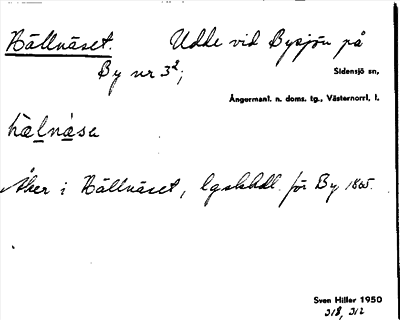 Hällnäset. Udde vid Bysjön på
By nr 3²;
Sidensjö sn,
Ångermanl. n. doms. tg., Västernorrl. l.
hälnäse
Åker i Hällnäset, lgskhdl. för By 1805.
Sven Hiller 1950
318, 312